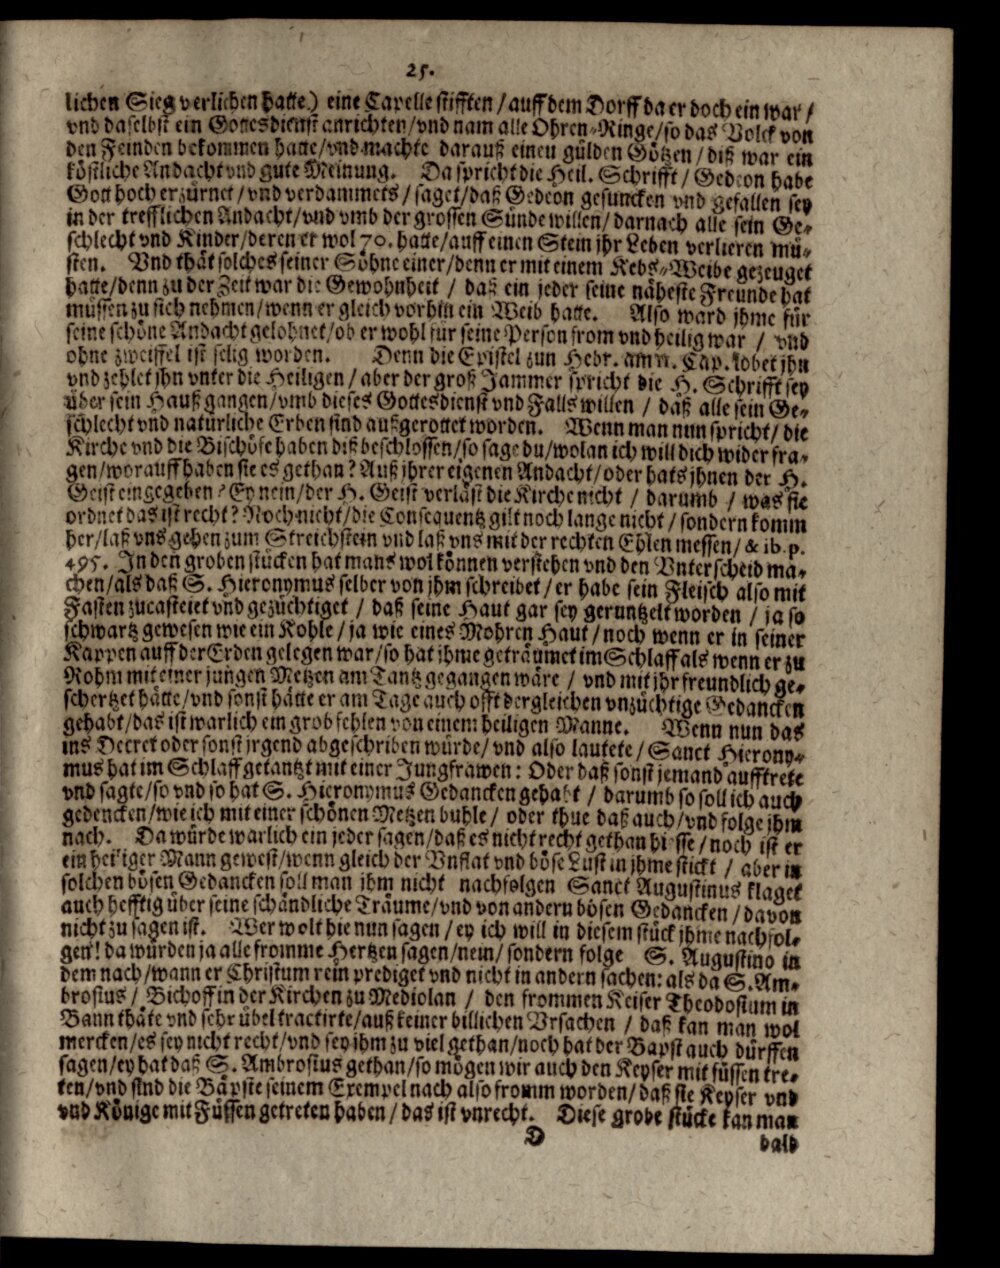 25.
lichen Sieg verliehen hatte.) eine Capelle stifften / auff dem Dorff da er doch ein war /
vnd daselbst ein Gottesdienst anrichten / vnd nam alle Ohren-Ringe / so das Volck von
den Feinden bekommen hatte / vnd machte darauß einen gülden Götzen / diß war ein
köstliche Andacht vnd gute Meinung. Da spricht die Heil. Schrifft / Gedeon habe
Gott hoch erzürnet / vnd verdammets / saget / daß Gedeon gesuncken vnd gefallen sey
in der trefflichen Andacht / vnd vmb der grossen Sünde willen / darnach alle sein Ge-
schlecht vnd Kinder / deren er wol 70. hatte / auff einen Stein jhr Leben verlieren mü-
sten. Vnd thät solches seiner Söhne einer / denn er mit einem Kebs-Weibe gezeuget
hatte / denn zu der Zeit war die Gewohnheit / daß ein jeder seine näheste Freunde hat
müssen zu sich nehmen / wenn er gleich vorhin ein Weib hatte. Also ward jhme für
seine schöne Andacht gelohnet / ob er wohl für seine Person from vnd heilig war / vnd
ohne zweiffel ist selig worden. Denn die Epistel zun Hebr. am 11. Cap. lobet jhn
vnd zehlet jhn vnter die Heiligen / aber der groß Jammer spricht die H. Schrifft sey
über sein Hauß gangen / vmb dieses Gottesdienst vnd Falls willen / daß alle sein Ge-
schlecht vnd natürliche Erben sind außgerottet worden. Wenn man nun spricht / die
Kirche vnd die Bischöfe haben diß beschlossen / so sage du / wolan ich will dich wider fra-
gen / worauff haben sie es gethan? Auß jhrer eigenen Andacht / oder hats jhnen der H.
Geist eingegeben? Ey nein / der H. Geist verläst die Kirche nicht / darumb / was sie
ordnet das ist recht? Noch nicht / die Consequentz gilt noch lange nicht / sondern komm
her / laß vns gehen zum Streichstein vnd laß vns mit der rechten Ehlen messen / & ib. p.
495. In den groben stücken hat mans wol können verstehen vnd den Vnterscheid ma-
chen / als daß S. Hieronymus selber von jhm schreibet / er habe sein Fleisch also mit
Fasten zucasteiet vnd gezüchtiget / daß seine Haut gar sey geruntzelt worden / ja so
schwartz gewesen wie ein Kohle / ja wie eines Mohren Haut / noch wenn er in seiner
Kappen auff der Erden gelegen war / so hat jhme geträumet im Schlaff als wenn er zu
Rohm mit einer jungen Metzen am Tantz gegangen wäre / vnd mit jhr freundlich ge-
schertzet hätte / vnd sonst hätte er am Tage auch offt dergleichen vnzüchtige Gedancken
gehabt / das ist warlich ein grob fehlen von einem heiligen Manne. Wenn nun das
ins Decret oder sonst jrgend abgeschriben würde / vnd also lautete / Sanct Hierony-
mus hat im Schlaff getantzt mit einer Jungfrawen: Oder daß sonst jemand aufftrete
vnd sagte / so vnd so hat S. Hieronymus Gedancken gehabt / darumb so soll ich auch
gedencken / wie ich mit einer schönen Metzen buhle / oder thue daß auch / vnd folge jhm
nach. Da würde warlich ein jeder sagen / daß es nicht recht gethan hiesse / noch ist er
ein heiliger Mann gewest / wenn gleich der Vnflat vnd böse Lust in jhme stickt / aber in
solchen bösen Gedancken soll man jhm nicht nachfolgen Sanct Augustinus klaget
auch hefftig über seine schändliche Träume / vnd von andern bösen Gedancken / davon
nicht zu sagen ist. Wer wolt hie nun sagen / ey ich will in diesem stück jhme nachfol-
gen! da würden ja alle fromme Hertzen sagen / nein / sondern folge S. Augustino in
dem nach / wann er Christum rein prediget vnd nicht in andern sachen: als da S. Am-
brosius / Bichoff in der Kirchen zu Mediolan / den frommen Keiser Theodosium in
Bann thäte vnd sehr übel tractirte / auß keiner billichen Vrsachen / daß kan man wol
mercken / es sey nicht recht / vnd sey jhm zu viel gethan / noch hat der Bapst auch dürffen
sagen / ey hat daß S. Ambrosius gethan / so mögen wir auch den Keyser mit füssen tre-
ten / vnd sind die Bäpste seinem Exempel nach also fromm worden / daß sie Keyser vnd
vnd Könige mit Füssen getreten haben / das ist vnrecht. Diese grobe stücke kan man
D
bald